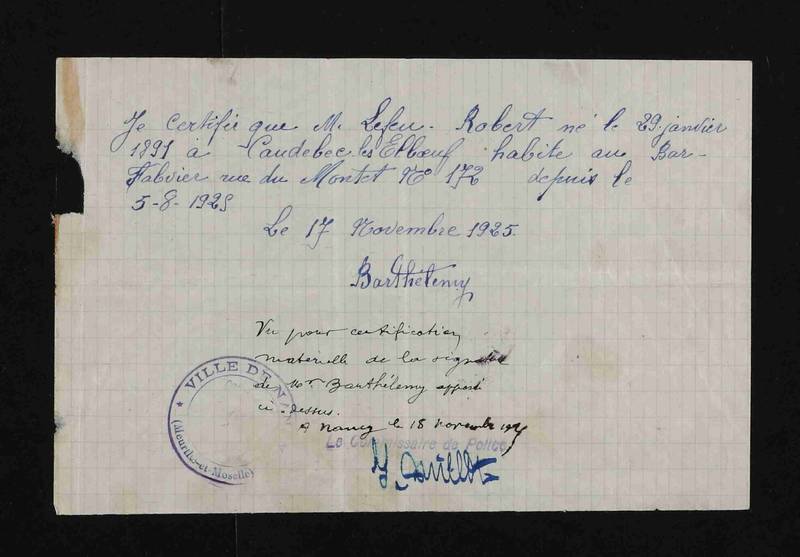 Je certifie que M. Lefeu. Robert né le 29 janvier
1891 à Caudebec les Elboeuf habite au Bar-
Fabvier rue du Montet No 172 depuis le
5-8-1925
Le 17 Novembre 1925.
Barthélemy
Vu pour certification
matérielle de la signature
de Mr Barthélemy apposé
ci-dessus.
A Nancy le 18 novembre 1925
Le Commissaire de Police
VILLE DE NA
(Meurthe-et-Moselle)